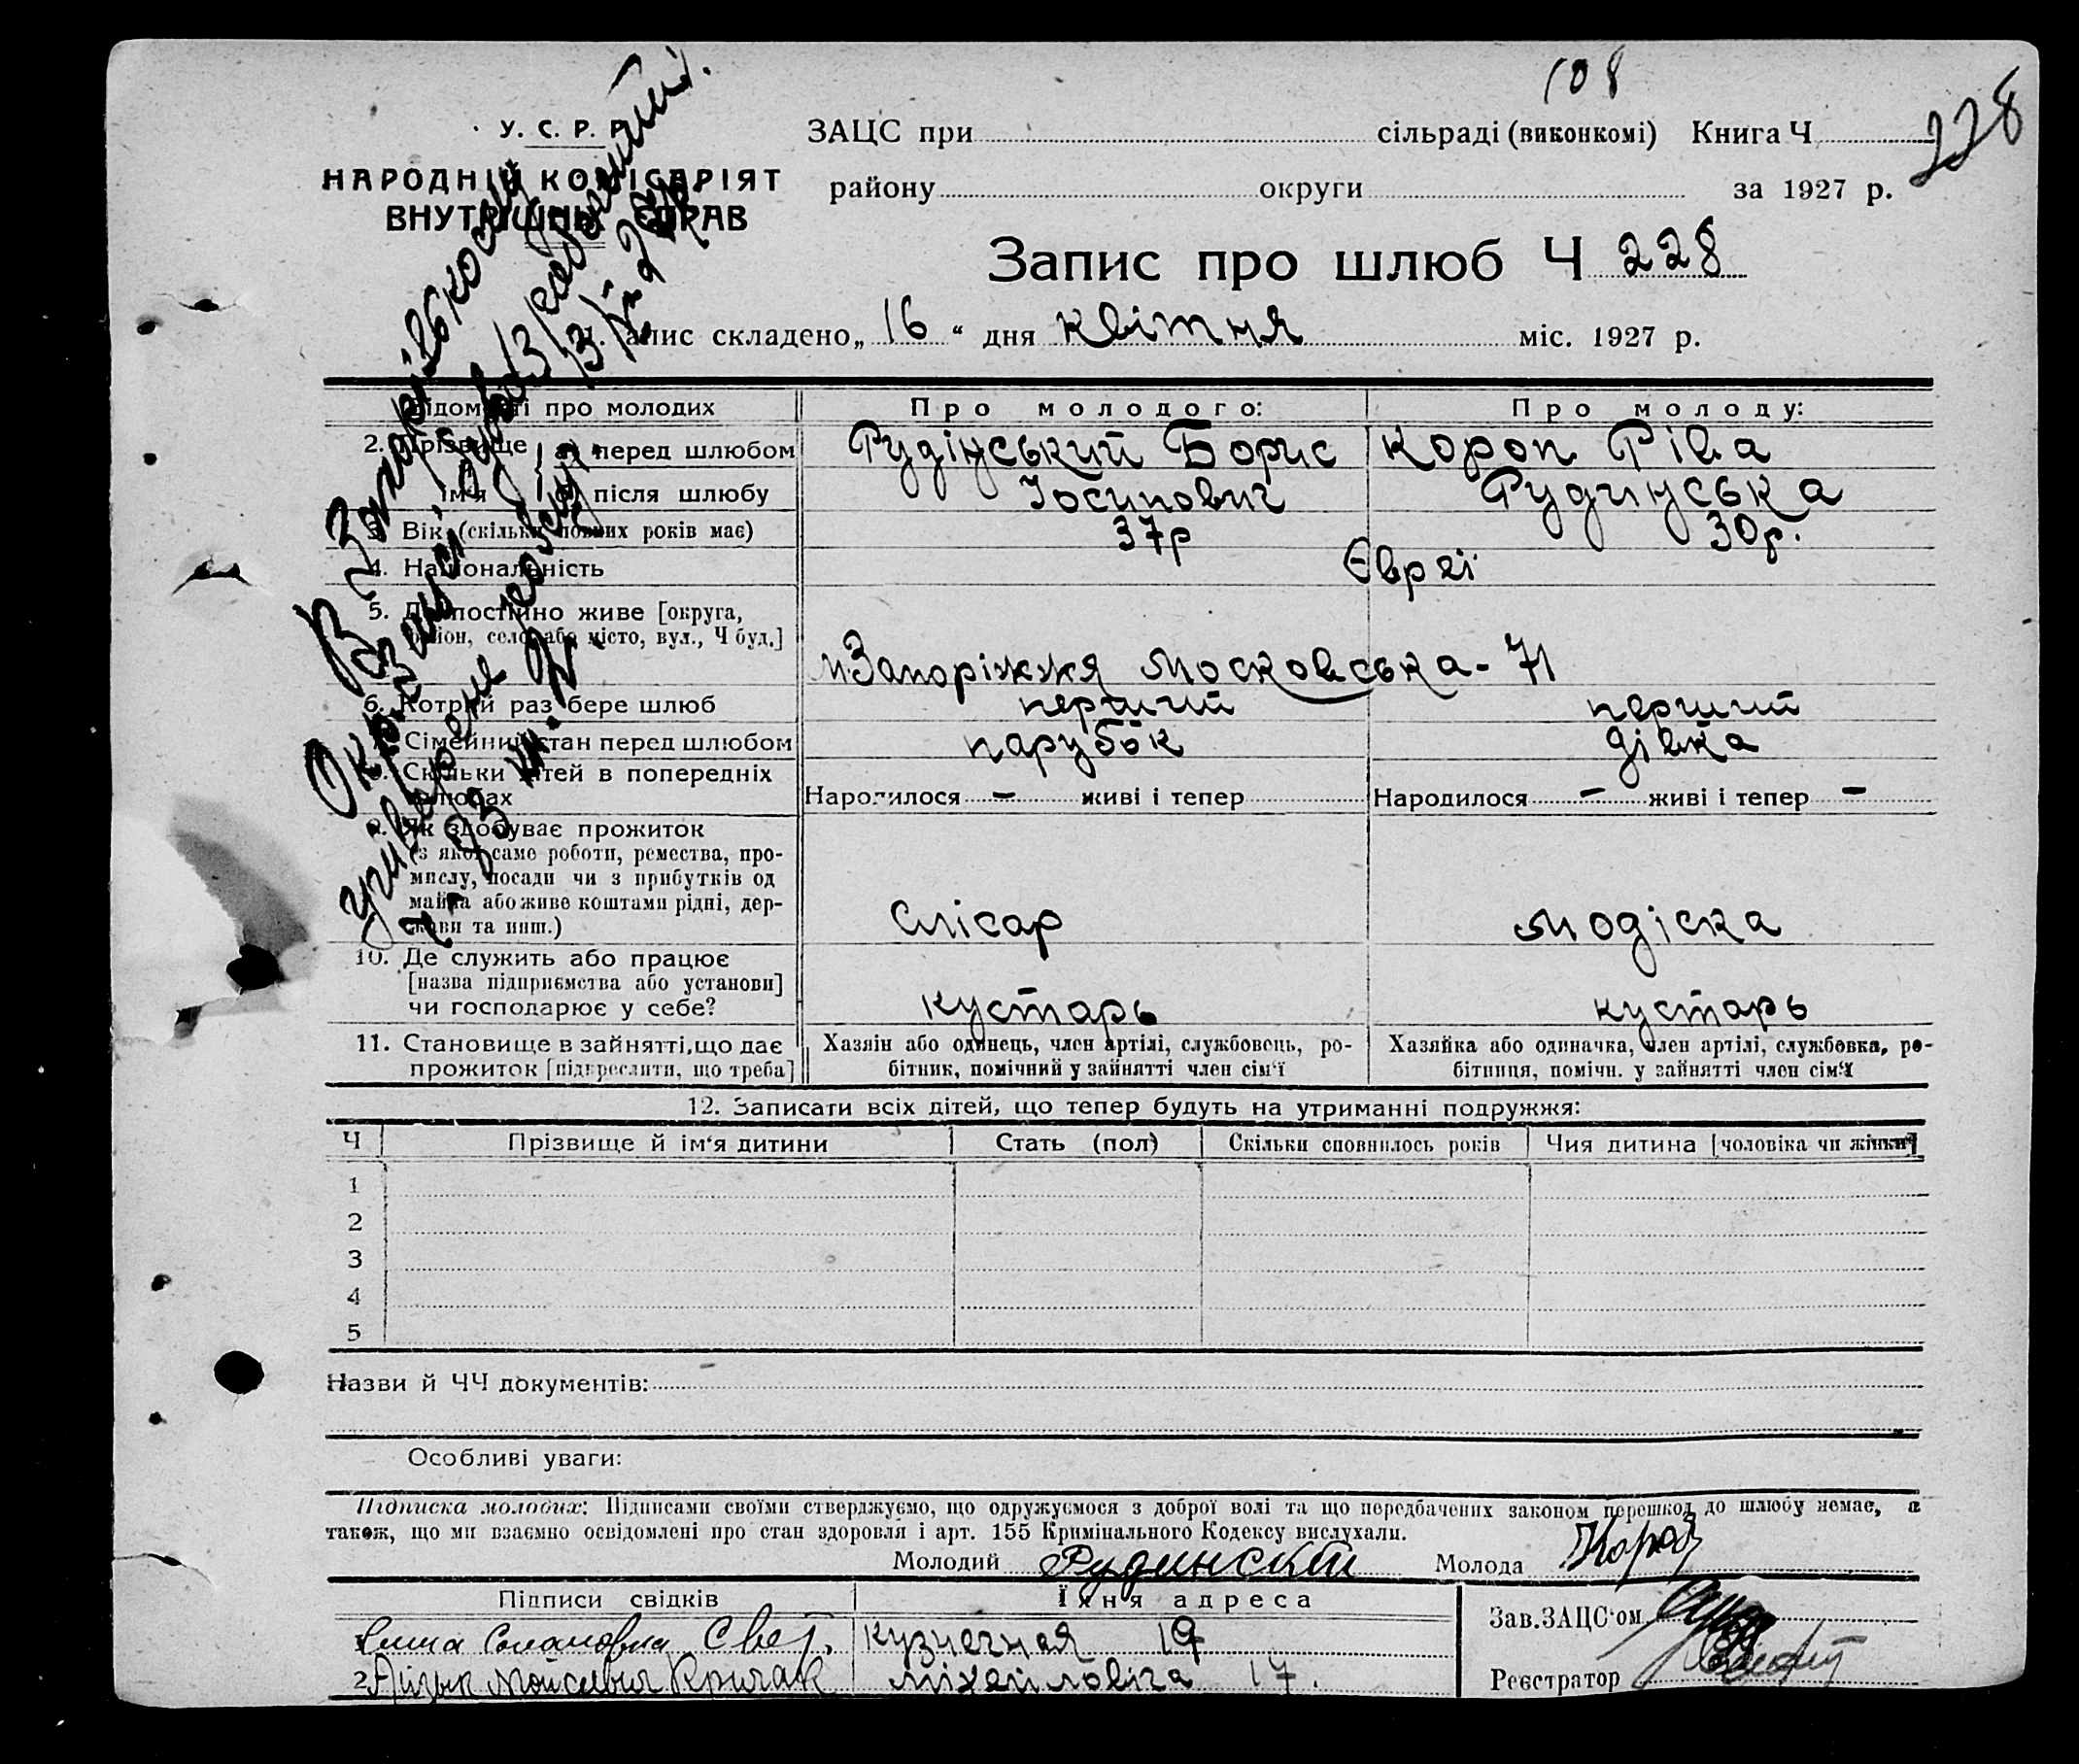 108
228
У. С. Р. Р.
НАРОДНІЙ КОМІСАРІЯТ
ВНУТРІШНІХ СПРАВ
ЗАЦС при сільраді (виконкомі) Книга Ч
району округи за 1927 р.
Запис про шлюб Ч 228
1. Запис складено „16“ дня квітня міс. 1927 р.
Відомості про молодих Про молодого: Про молоду:
2. Прізвище й ім'я
а) перед шлюбом Рудінський Борис Короп Ріва
б) після шлюбу Йосипович Рудинська
3. Вік (скільки повних років має) 37р 30р.
4. Національність Євреї
5. Де постійно живе [округа,
район, село або місто, вул., Ч буд.]
м Запоріжжя Московська - 71
6. Котрий раз бере шлюб перший перший
7. Сімейний стан перед шлюбом парубок дівка
8. Скільки дітей в попередніх
шлюбах Народилося – живі і тепер Народилося – живі і тепер –
9. Як здобуває прожиток
(з якої саме роботи, ремества, про-
мислу, посади чи з прибутків од
майна або живе коштами рідні, дер-
жави та инш.) Слісар модіска
10. Де служить або працює
[назва підприємства або установи]
чи господарює у себе? кустарь кустарь
11. Становище в зайнятті, що дає
прожиток [підкреслити, що треба]
Хазяїн або одинець, член артілі, службовець, ро-
бітник, помічний у зайнятті член сім'ї
Хазяйка або одиначка, член артілі, службовка, ро-
бітниця, помічн. у зайнятті член сім'ї
12. Записати всіх дітей, що тепер будуть на утриманні подружжя:
Ч Прізвище й ім'я дитини Стать (пол) Скільки сповнилось років Чия дитина [чоловіка чи жінки]
1
2
3
4
5
Назви й ЧЧ документів:
Особливі уваги:
Підписка молодих: Підписами своїми стверджуємо, що одружуємося з доброї волі та що передбачених законом перешкод до шлюбу немає, а
також, що ми взаємно освідомлені про стан здоровля і арт. 155 Кримінального Кодексу вислухали.
Молодий Рудинский Молода
Підписи свідків Їхня адреса
Кузнечная 19
2 Мойсеевич Кричак Міхайловіча 17.
Зав. ЗАЦС'ом
Реєстратор